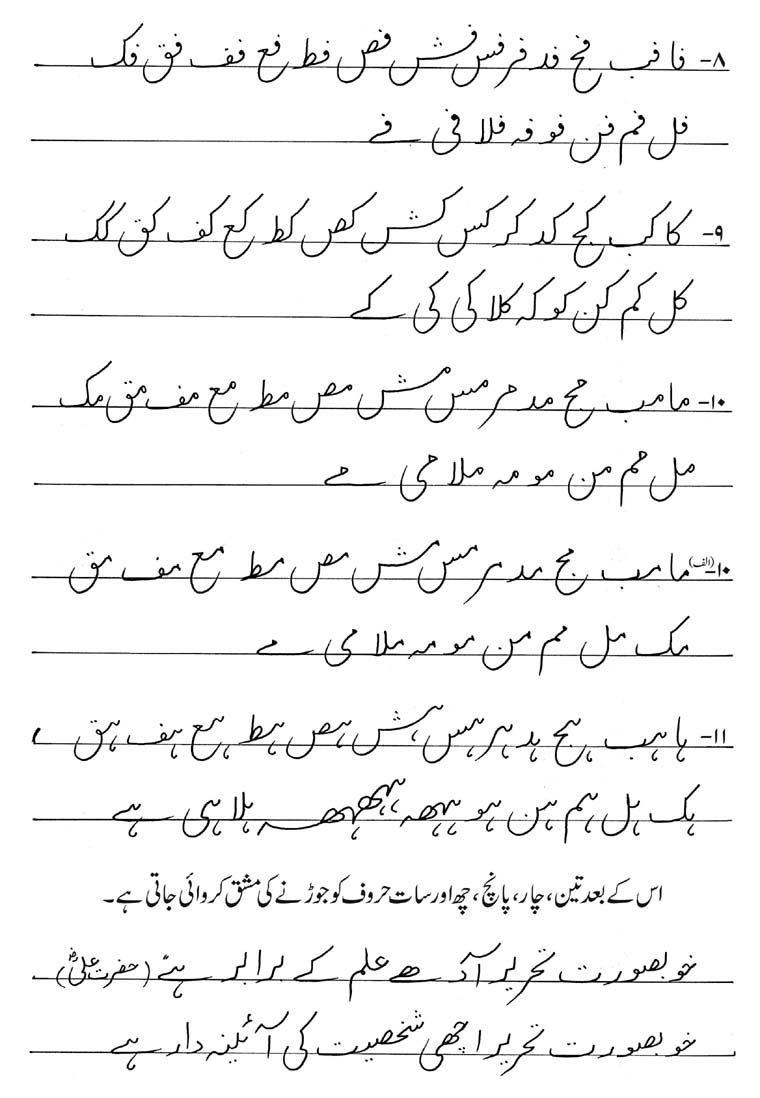 ۸- فا فب فج فد فر فس فش فص فط فع فف فق فک
فل فم فن فو فہ فلا فی فے
۹- کا کب کج کد کر کس کش کص کط کع کف کق کک
کل کم کن کو کہ کلا کی کی کے
۱۰- ما مب مج مد مر مس مش مص مط مع مف مق مک
مل مم من مو مہ ملا می مے
۱۰-(الف) ما مب مج مد مر مس مش مص مط مع مف مق
مک مل مم من مو مہ ملا می مے
۱۱- ہا ہب ہج ہد ہر ہس ہش ہص ہط ہع ہف ہق
ہک ہل ہم ہن ہو ہہ ہلا ہی ہے
اس کے بعد تین، چار، پانچ، چھ اور سات حروف کو جوڑنے کی مشق کروائی جاتی ہے۔
خوبصورت تحریر آدھے علم کے برابر ہے (حضرت علیؓ)
خوبصورت تحریر اچھی شخصیت کی آئینہ دار ہے